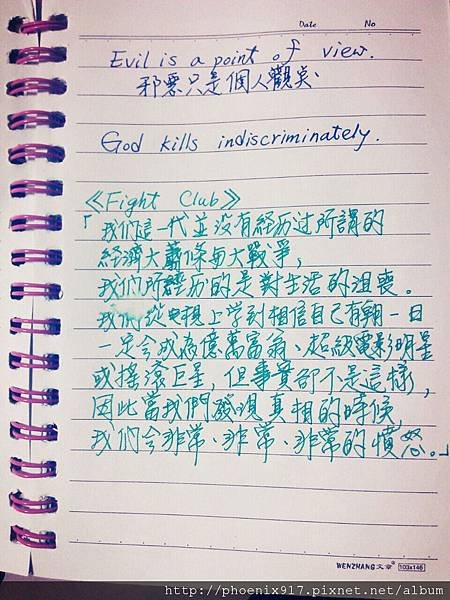 Date No
Evil is a point of view.
邪惡只是個人觀點
God kills indiscriminately.
《Fight Club》
「我们這一代並没有経历过所謂的
経濟大蕭條与大戰爭,
我们所經历的是對生活的沮喪。
我们從电視上学到相信自己有朝一日
一定会成為億萬富翁、超級電影明星
或搖滾巨星,但事實卻不是這樣,
因此當我們發現真相的時候,
我们会非常、非常、非常的憤怒。」
WENZHANG文章® 103x146
http://phoenix917.pixnet.net/album